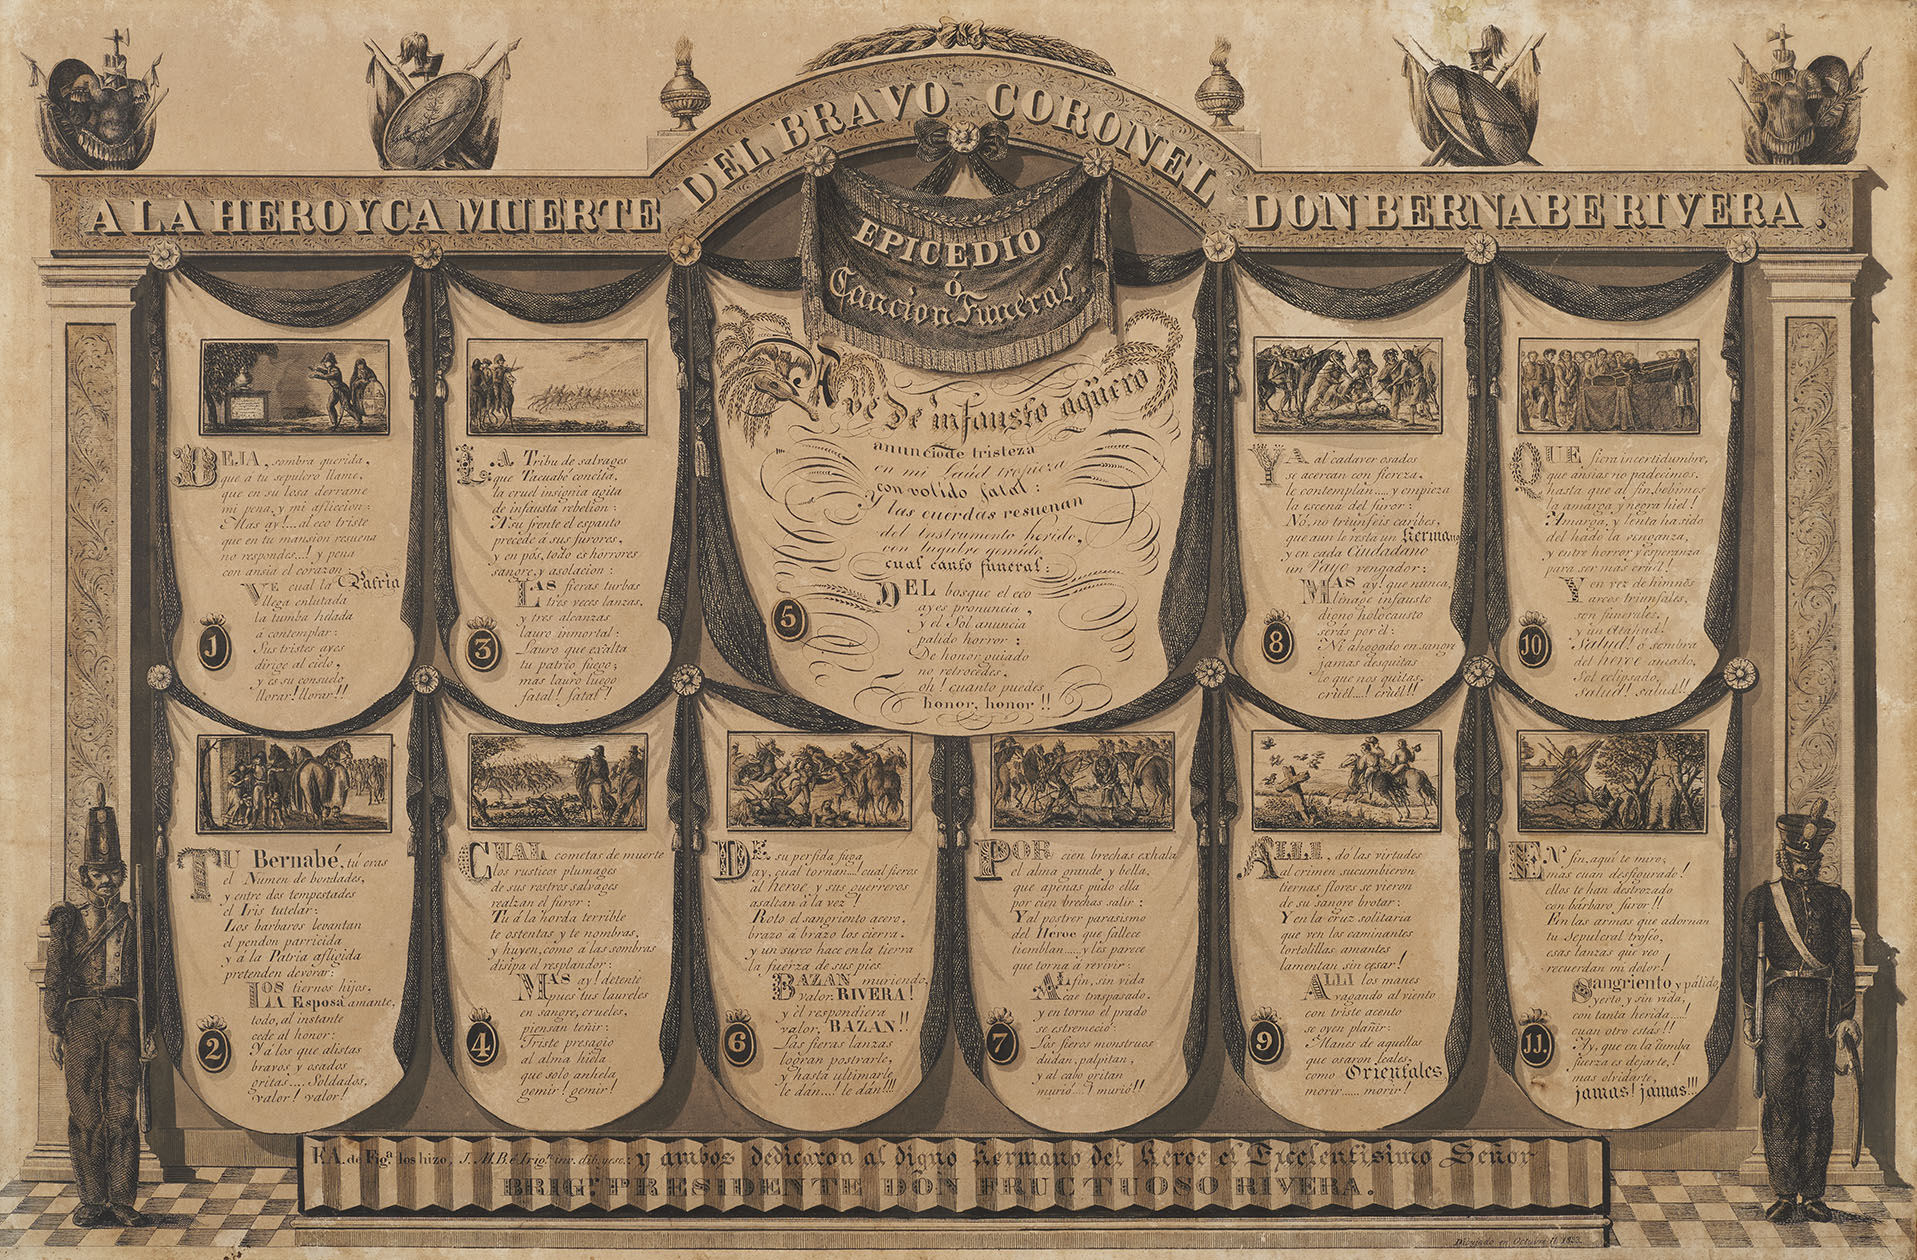 A LA HEROYCA MUERTE DEL BRAVO CORONEL DON BERNABE RIVERA.
EPICEDIO
ó
Cancion Funeral.
DEJA, sombra querida,
que á tu sepulcro llame,
que en su losa derrame
mi pena, y mi afliccion:
Mas ay!...al eco triste
que en tu mansion resuena
no respondes...! y pena
con ansia el corazon:
VE cual la Patria
llega enlutada
la tumba helada
á contemplar:
Sus tristes ayes
dirige al cielo,
y es su consuelo
llorar! llorar!!
1
TU Bernabé, tú eras
el Numen de bondades,
y entre dos tempestades
el Iris tutelar:
Los barbaros levantan
el pendon parricida
y á la Patria afligida
pretenden devorar:
LOS tiernos hijos,
LA Esposa amante,
todo, al instante
cede al honor:
Y á los que alistas
bravos y osados
gritas.... Soldados,
valor! valor!
2
LA Tribu de salvages
que Tacuabé concita,
la cruel insignia agita
de infausta rebelion:
A su frente el espanto
precede á sus furores,
y en pós, todo es horrores
sangre, y asolacion:
LAS fieras turbas
tres veces lanzas,
y tres alcanzas
lauro inmortal:
Lauro que exalta
tu patrio fuego;
mas lauro luego
fatal! fatal!
3
CUAL cometas de muerte
los rusticos plumages
de sus rostros salvages
realzan el furor:
Tu á la horda terrible
te ostentas y te nombras,
y huyen, como á las sombras
disipa el resplandor:
MAS ay! detente
pues tus laureles
en sangre, crueles,
piensan teñir:
Triste presagio
al alma hiela
que solo anhela
gemir! gemir!
4
Ave De infausto agüero
anuncio de tristeza
en mi Laúd tropieza
con volido fatal:
Y las cuerdas resuenan
del instrumento herido,
con lugubre gemido
cual canto funeral:
DEL bosque el eco
ayes pronuncia,
y el Sol anuncia
palido horror:
De honor guiado
no retrocedes,
oh! cuanto puedes
honor, honor!!
5
DE su perfida fuga
ay, cual tornan...! cual fieros
al heroe, y sus guerreros
asaltan á la vez!
Roto el sangriento acero,
brazo á brazo los cierra,
y un surco hace en la tierra
la fuerza de sus pies
BAZAN muriendo,
valor, RIVERA!
y él respondiera
valor, BAZAN!!
Las fieras lanzas
logran postrarle,
y hasta ultimarle
le dan...! le dan!!!
6
POR cien brechas exhala
el alma grande y bella,
que apenas pudo ella
por cien brechas salir:
Y al postrer parasismo
del Heroe que fallece
tiemblan.... y les parece
que torna á revivir:
AL fin, sin vida
cae traspasado,
y en torno el prado
se estremeció:
Los fieros monstruos
dudan, palpitan,
y al cabo gritan
murió....! murió!!
7
YA al cadaver osados
se acercan con fiereza,
le contemplan.... y empieza
la escena del furor:
Nó, no triunfeis caribes,
que aun le resta un Hermano
y en cada Ciudadano
un Rayo vengador:
MAS ay! que nunca,
linage infausto
digno holocausto
serás por él:
Ni ahogado en sangre
jamas desquitas
lo que nos quitas,
cruel....! cruel!!
8
ALLI, dó las virtudes
al crimen sucumbieron
tiernas flores se vieron
de su sangre brotar:
Y en la cruz solitaria
que ven los caminantes
tortolillas amantes
lamentan sin cesar!
ALLI los manes
vagando al viento
con triste acento
se oyen plañir:
Manes de aquellos
que osaron leales,
como Orientales
morir...... morir!
9
QUE fiera incertidumbre,
que ansias no padecimos,
hasta que al fin bebimos
la amarga y negra hiel!
Amarga, y lenta ha sido
del hado la venganza,
y entre horror y esperanza
para ser mas cruel!
Y en vez de himnos
y arcos triunfales,
son funerales,
y un Atahud!
Salud! ó sombra
del heroe amado,
Sol eclipsado,
salud! salud!!
10
EN fin, aqui te miro;
mas cuan desfigurado!
ellos te han destrozado
con bárbaro furor!!
En las armas que adornan
tu sepulcral troféo,
esas lanzas que veo
recuerdan mi dolor!
Sangriento y pálido,
yerto, y sin vida,
con tanta herida.....
cuan otro estás!!
Ay, que en la tumba
fuerza es dejarte,!
mas olvidarte,
jamas! jamas!!!
11.
F.A. de Figª los hizo, J.M.B. é Irign inv. dib. y esc.: y ambos dedicaron al digno Hermano del Heroe el Excelentisimo Señor
BRIGr. PRESIDENTE DON FRUCTUOSO RIVERA.
Dibujado en Octubre 11 1833.